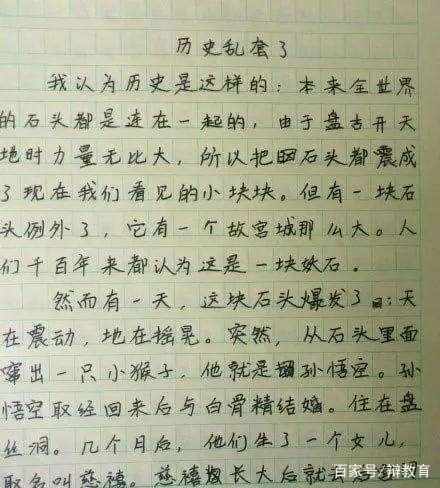 历史乱套了
我认为历史是这样的：本来全世界
的石头都是连在一起的，由于盘古开天
地时力量无比大，所以把石头都震成
了现在我们看见的小块块。但有一块石
头例外了，它有一个故宫城那么大。人
们千百年来都认为这是一块妖石。
然而有一天，这块石头爆发了：天
在震动，地在摇晃。突然，从石头里面
窜出一只小猴子，他就是孙悟空。孙
悟空取经回来后与白骨精结婚。住在盘
丝洞。几个月后，他们生了一个女儿，
取名叫慈禧。慈禧长大后就去
百家号/辩教育